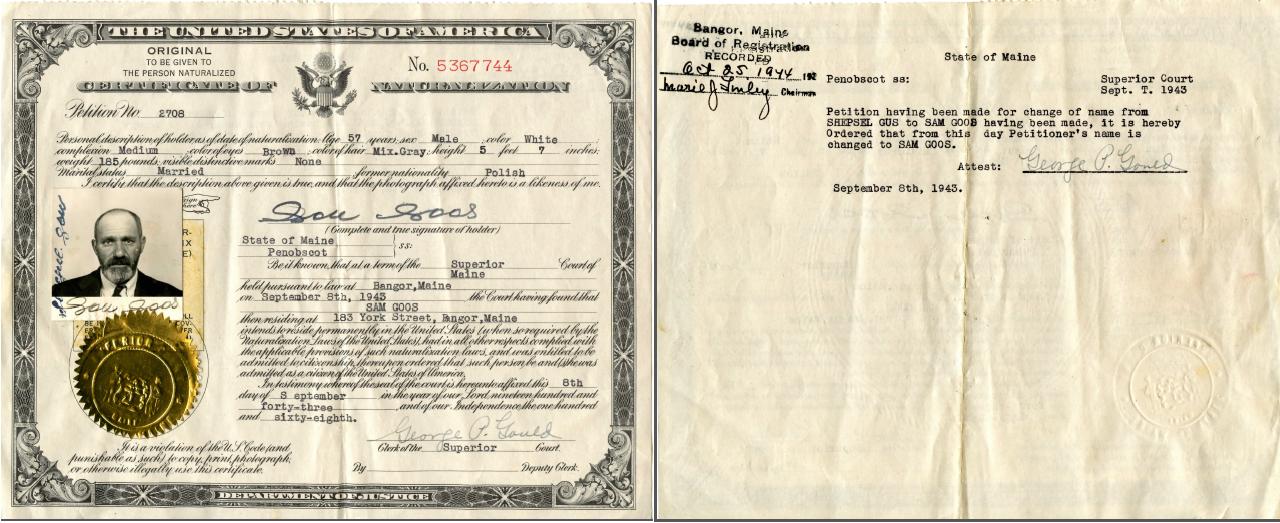 THE UNITED STATES OF AMERICA
ORIGINAL
TO BE GIVEN TO
THE PERSON NATURALIZED
No. 5367744
CERTIFICATE OF NATURALIZATION
Petition No. 2708
Personal description of holder as of date of naturalization: Age 57 years; sex Male color White
complexion Medium color of eyes Brown color of hair Mix.Gray height 5 feet 7 inches;
weight 185 pounds; visible distinctive marks None
Marital status Married former nationality Polish
I certify that the description above given is true, and that the photograph affixed hereto is a likeness of me.
Sam Goos
(Complete and true signature of holder)
State of Maine
Penobscot ss:
Be it known, that at a term of the Superior Court of
Maine
held pursuant to law at Bangor, Maine
on September 8th, 1943 the Court having found that
SAM GOOS
then residing at 183 York Street, Bangor, Maine
intends to reside permanently in the United States (when so required by the
Naturalization Laws of the United States), had in all other respects complied with
the applicable provisions of such naturalization laws, and was entitled to be
admitted to citizenship, thereupon ordered that such person be and (s)he was
admitted as a citizen of the United States of America.
In testimony whereof the seal of the court is hereunto affixed this 8th
day of S eptember in the year of our Lord nineteen hundred and
forty-three and of our Independence the one hundred
and sixty-eighth.
George P. Gould
Clerk of the Superior Court.
By Deputy Clerk.
It is a violation of the U.S. Code (and
punishable as such) to copy, print, photograph,
or otherwise illegally use this certificate.
DEPARTMENT OF JUSTICE
Sam Goos
Bangor, Maine
Board of Registration
RECORDED
Oct 25, 1944 192
Chairman
State of Maine
Penobscot ss:
Superior Court
Sept. T. 1943
Petition having been made for change of name from
SHEPSEL GUS to SAM GOOS having been made, it is hereby
Ordered that from this day Petitioner's name is
changed to SAM GOOS.
Attest: George P. Gould
September 8th, 1943.